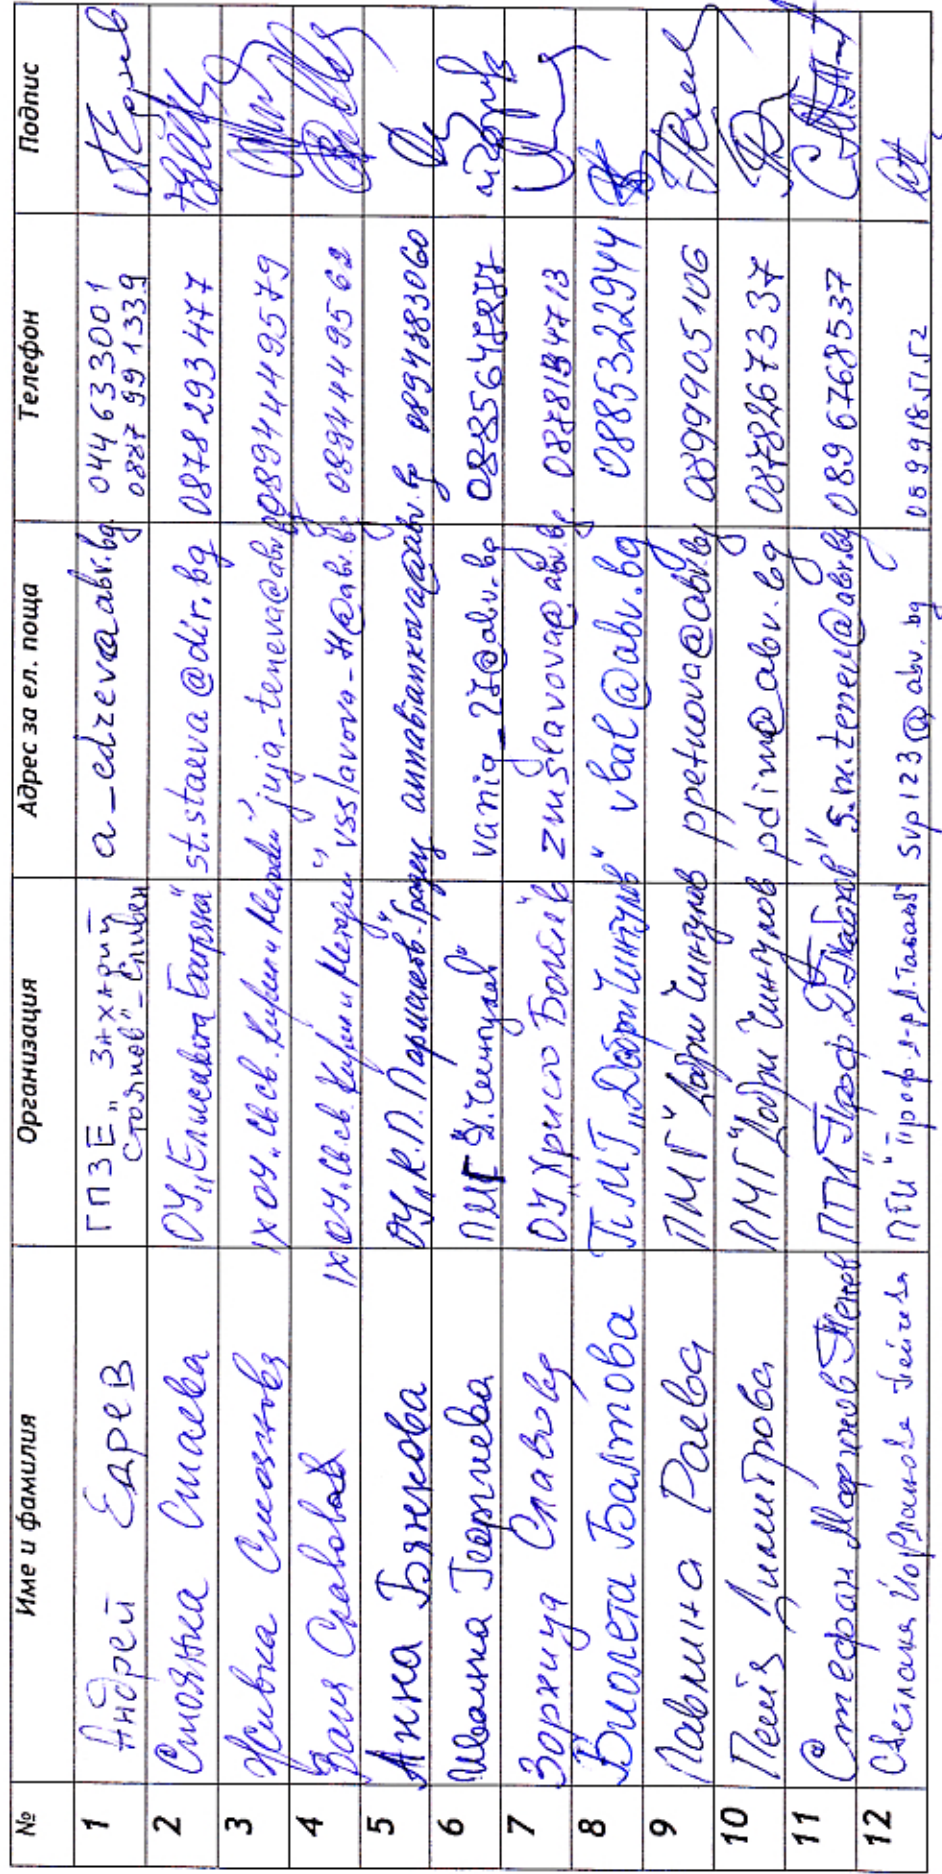 № Име и фамилия Организация Адрес за ел. поща Телефон Подпис
1 Андрей Едрев ГПЗЕ "Захарий Стоянов" - Сливен a_edrev@abv.bg 044633001
0887991339
2 Стоянка Стаева ОУ "Елисавета Багряна" st.staeva@dir.bg 0878293477
3 Живка Стоянова IX ОУ "Св. св. Кирил и Методий" juja_teneva@abv.bg 0894449579
4 Ваня Славова IX ОУ "Св. св. Кирил и Методий" vsslavova_71@abv.bg 0894449562
5 Анна Бянкова ОУ "К.П. Пармаков" Градец annabiankova@abv.bg 0894383060
6 Иванка Георгиева ПМГ "Д. Чинтулов" vania_27@abv.bg
7 Зорница Славова ОУ "Христо Ботев" zmslavova@abv.bg
8 Виолета Балтова ПМГ "Добри Чинтулов" vbal@abv.bg 0885322944
9 Павлина Раева ПМГ "Добри Чинтулов" ppetkova@abv.bg 0899905106
10 Пепа Димитрова ПМГ "Добри Чинтулов" pdim@abv.bg 0878267337
11 Стефан Мартинов Тенев ПТИ "Проф. Д. Табаков" s.m.tenev@abv.bg 0896768537
12 Светлана Йорданова Пейчева ПТИ "Проф. д-р Д. Табаков" svp123@abv.bg 0899185152